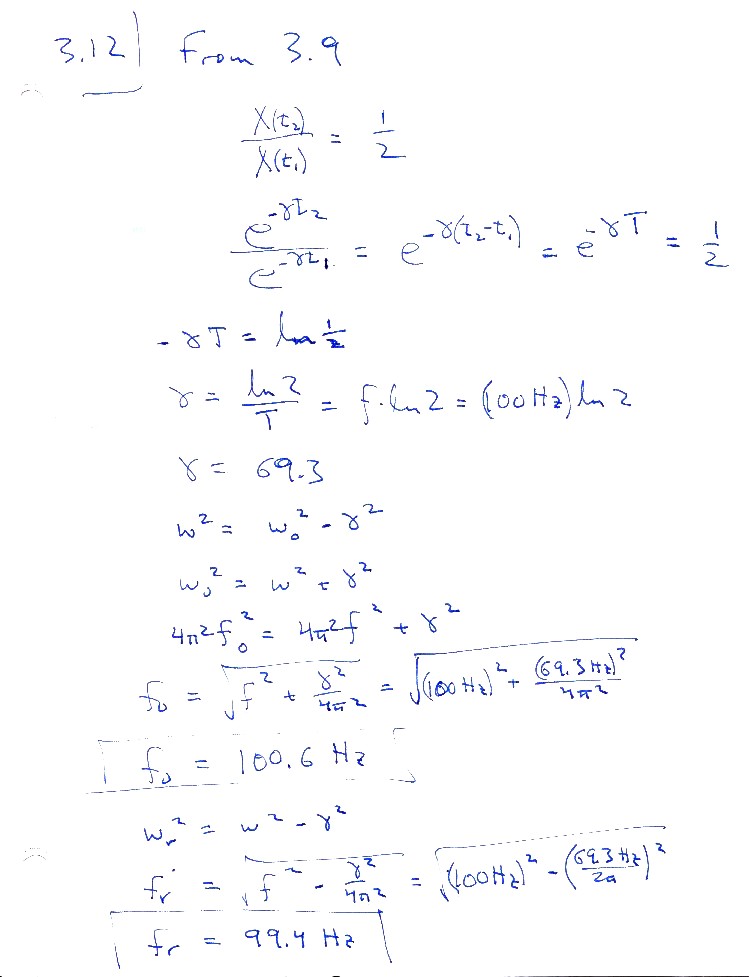 3.12| From 3.9
X(t₂)/X(t₁) = 1/2
e^(-γt₂)/e^(-γt₁) = e^(-γ(t₂-t₁)) = e^(-γT) = 1/2
-γT = ln 1/2
γ = ln 2/T = f·ln 2 = (100 Hz) ln 2
γ = 69.3
w² = w₀² - γ²
w₀² = w² + γ²
4π²f₀² = 4π²f² + γ²
f₀ = √(f² + γ²/4π²) = √((100 Hz)² + (69.3 Hz)²/4π²)
f₀ = 100.6 Hz
wᵣ² = w² - γ²
fᵣ = √(f² - γ²/4π²) = √((100Hz)² - (69.3 Hz/2π)²)
fᵣ = 99.4 Hz